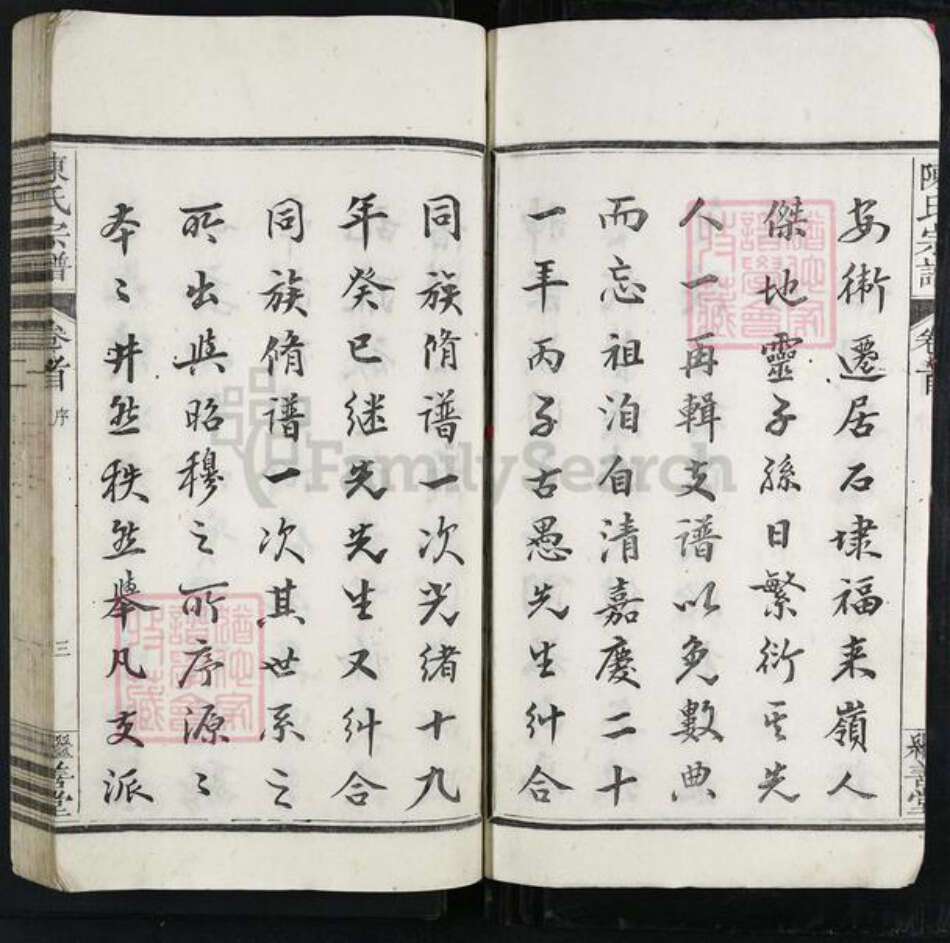 陳氏宗譜 卷首
安衛遷居石埭福来嶺人
傑地靈子孫日繁衍其先
人一再輯支譜以免數典
而忘祖洎自清嘉慶二十
一年丙子古愚先生糾合
同族脩譜一次光緒十九
年癸巳继先先生又糾合
同族脩譜一次其世系之
所出與昭穆之所序源〻
本〻井然秩然舉凡支派
陳氏宗譜 卷首 序 三 善堂
FamilySearch